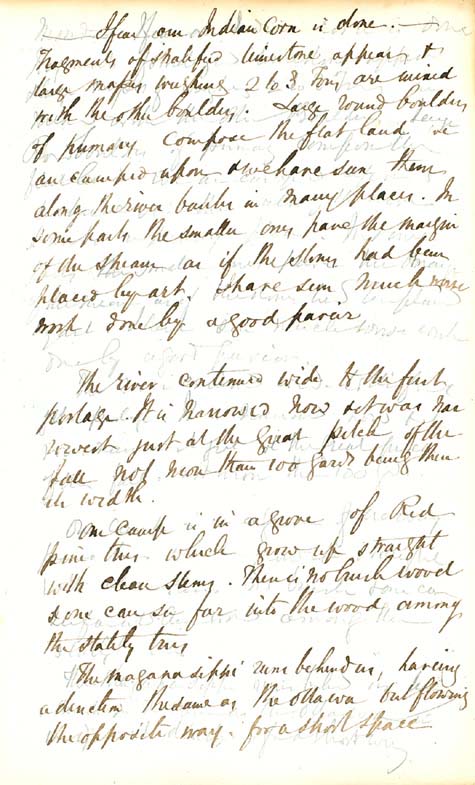 I fear our Indian Corn is done. —
Fragments of stratified limestone appear &
large masses weighing 2 to 3 Tons are mixed
with the other boulders Large round boulders
of primary compose the flat land we
are encamped upon & we have seen them
along the river banks in many places. In
some parts the smaller ones pave the margin
of the stream as if the stones had been
placed by art. I have seen much worse
work done by a good pavior
The river continued wide to the first
portage. It is narrowed now & it was nar
rowest just at the great pitch of the
fall not more than 100 yards being then
its width.
Our camp is in a grove of Red
pine trees which grow up straight
with clean stems. There is no brush wood
& one can see far into the wood among
the stately trees
The magana sippi runs behind us, having
a direction the same as the Ottawa but flowing
the opposite way. for a short space